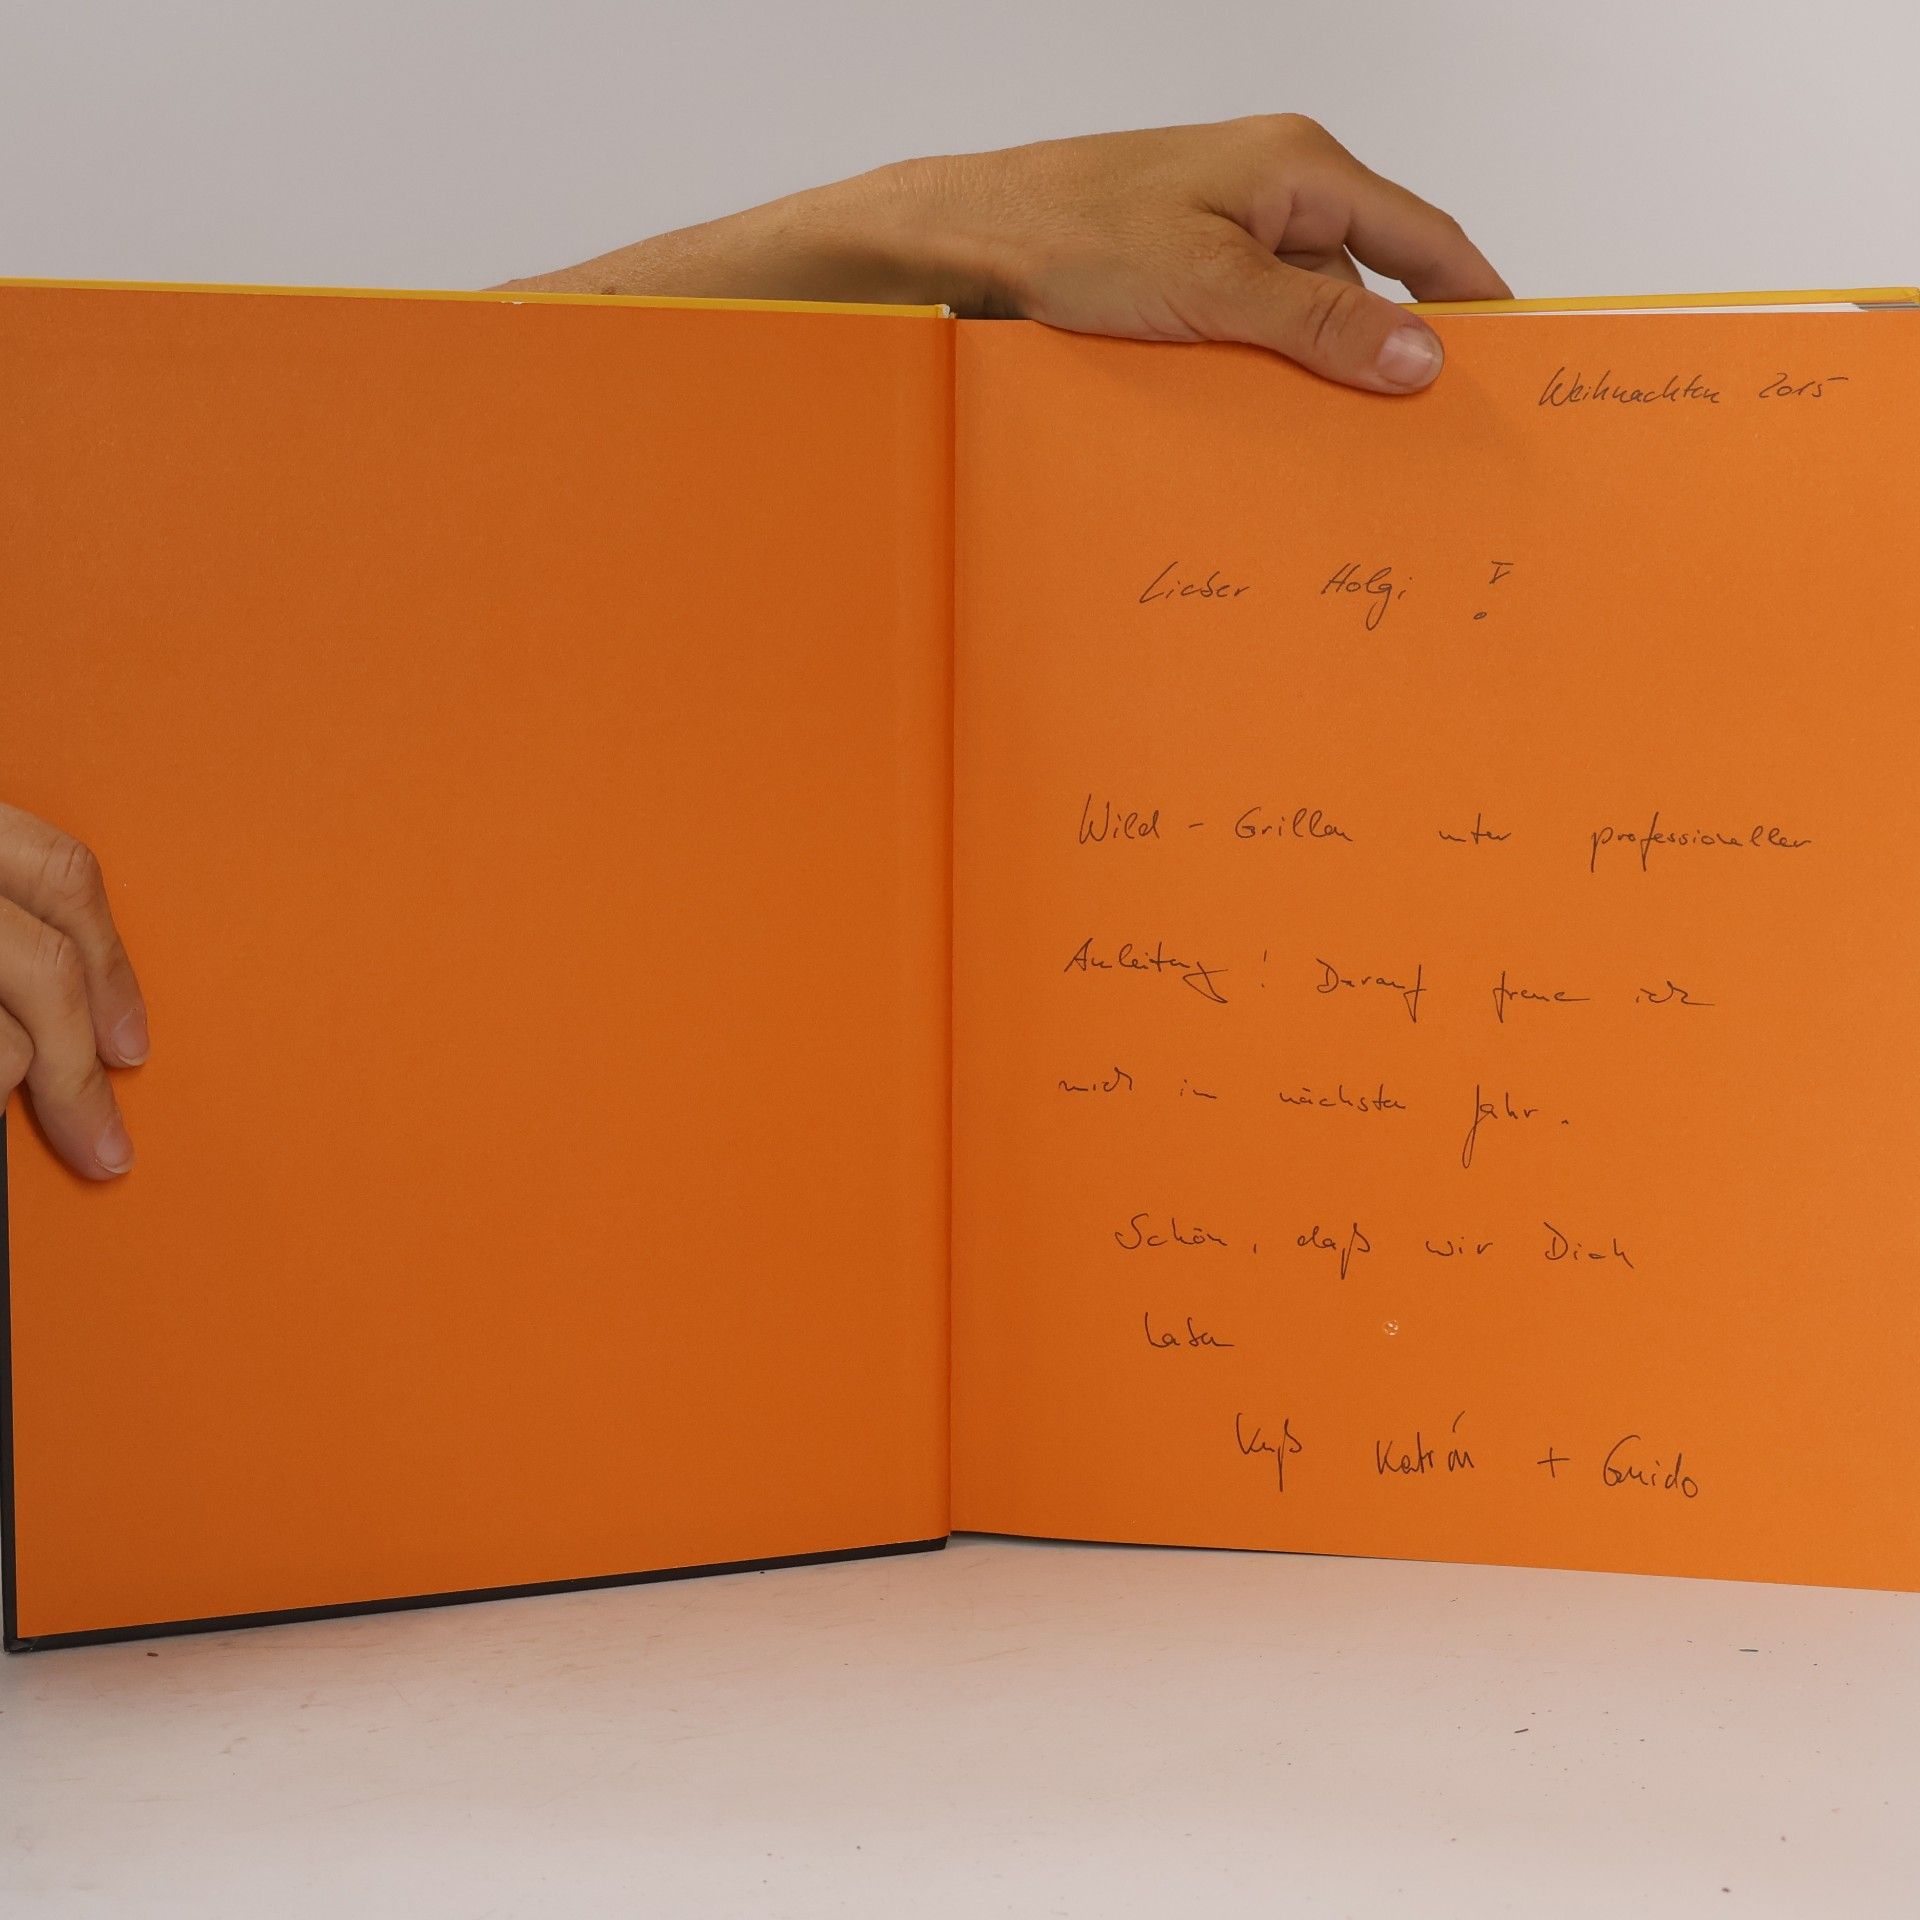 Weihnachten 2015
Lieber Holgi !
Wild - Grillen unter professioneller
Anleitung ! Darauf freue ich
mich im nächsten Jahr.
Schön, daß wir Dich
haben
Kuß Katrin + Guido